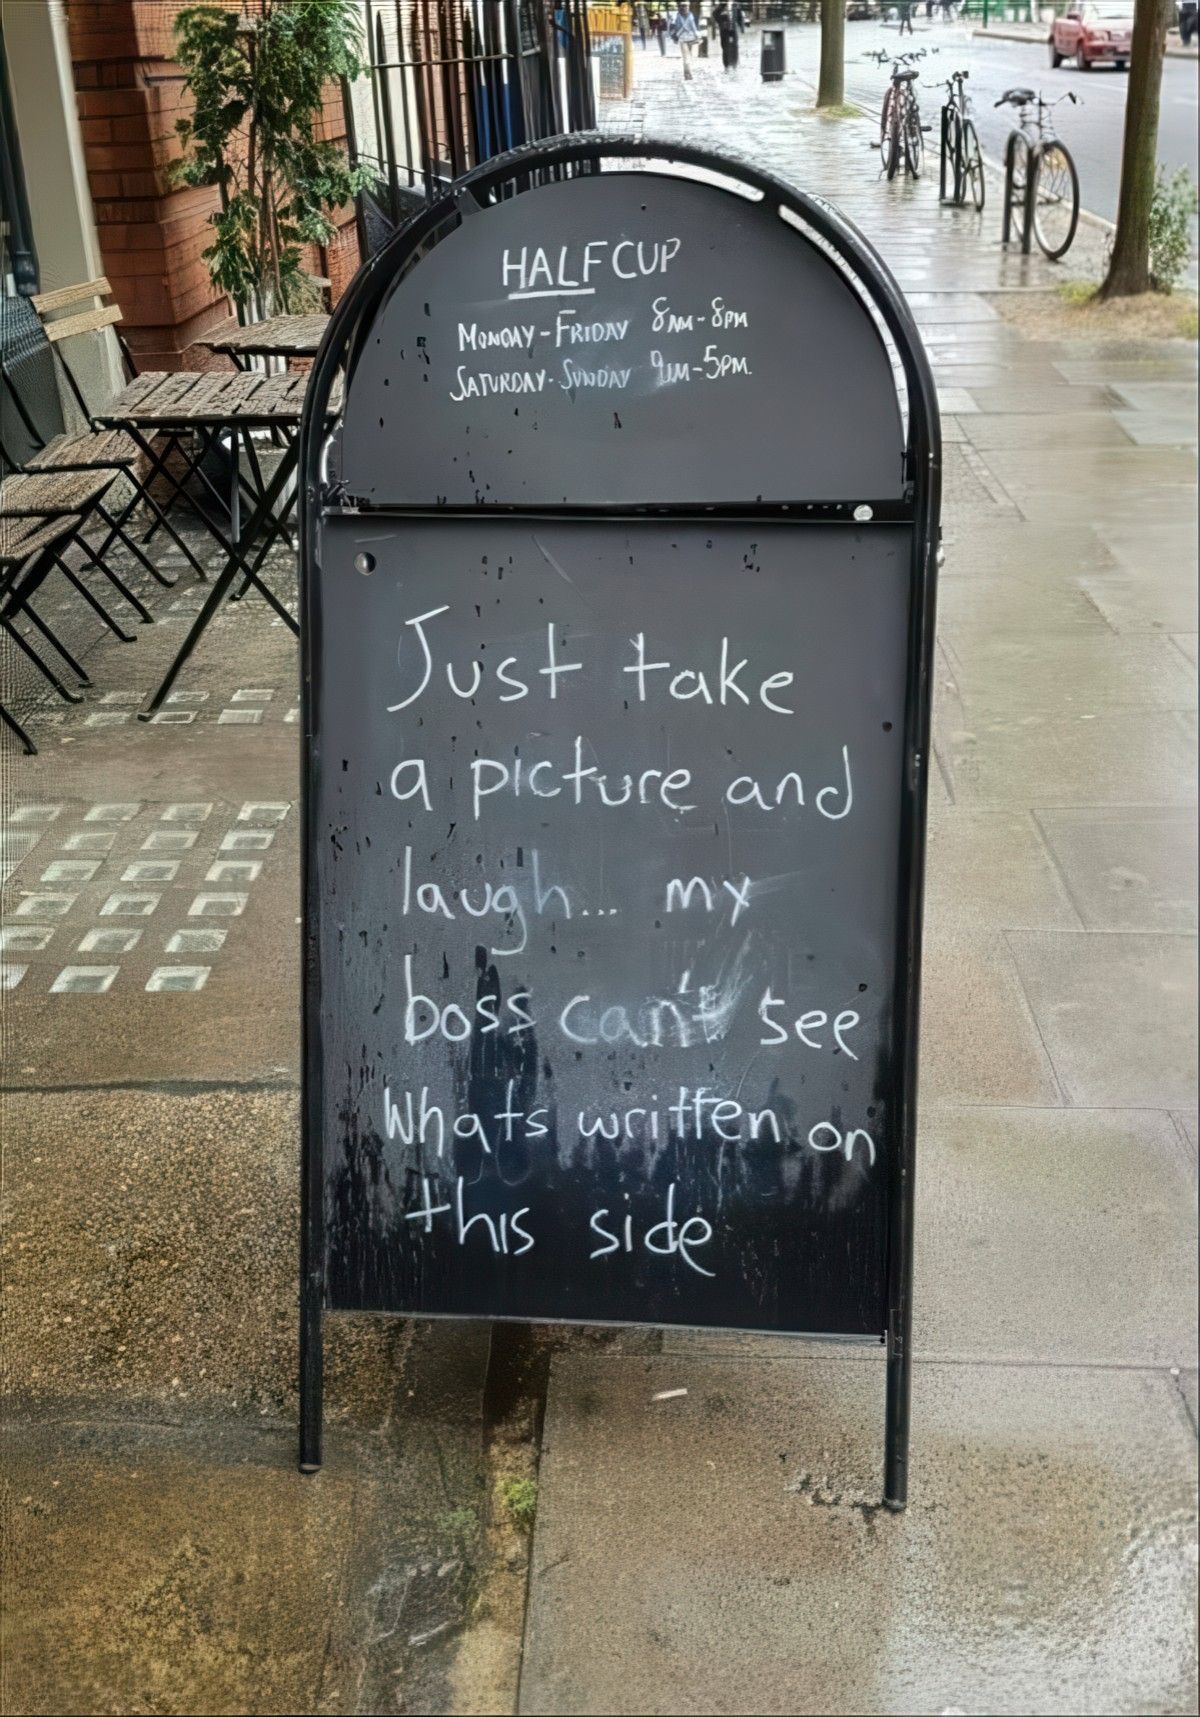 HALFCUP
MONDAY-FRIDAY 8AM-8PM
SATURDAY-SUNDAY 9AM-5PM.
Just take
a picture and
laugh... my
boss can't see
Whats written on
this side